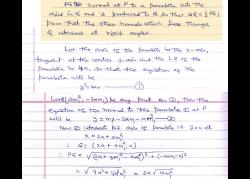 PG is normal at P to a parabola cuts the
axis in G and is produced to Q so that GQ = ½PG;
prove that the other normals which pass through
Q intersect at right angles.
Let the axis of the parabola be the x-axis,
tangent at the vertex y-axis and the LR of the
parabola be 4a, so that the equation of the
parabola will be
y² = 4ax
Let P(am², -2am) be any point on ①, then the
equation of the normal to the parabola ① at P
will be y = mx - 2am - am³
Now ② intersects the axis of parabola i.e. y = 0 at
x = 2a + am²
∴ G: (2a + am², 0)
∴ PG = √(2a + am² - am²)² + (-2am - 0)²
= √4a² + 4a²m² = 2a√1+m²